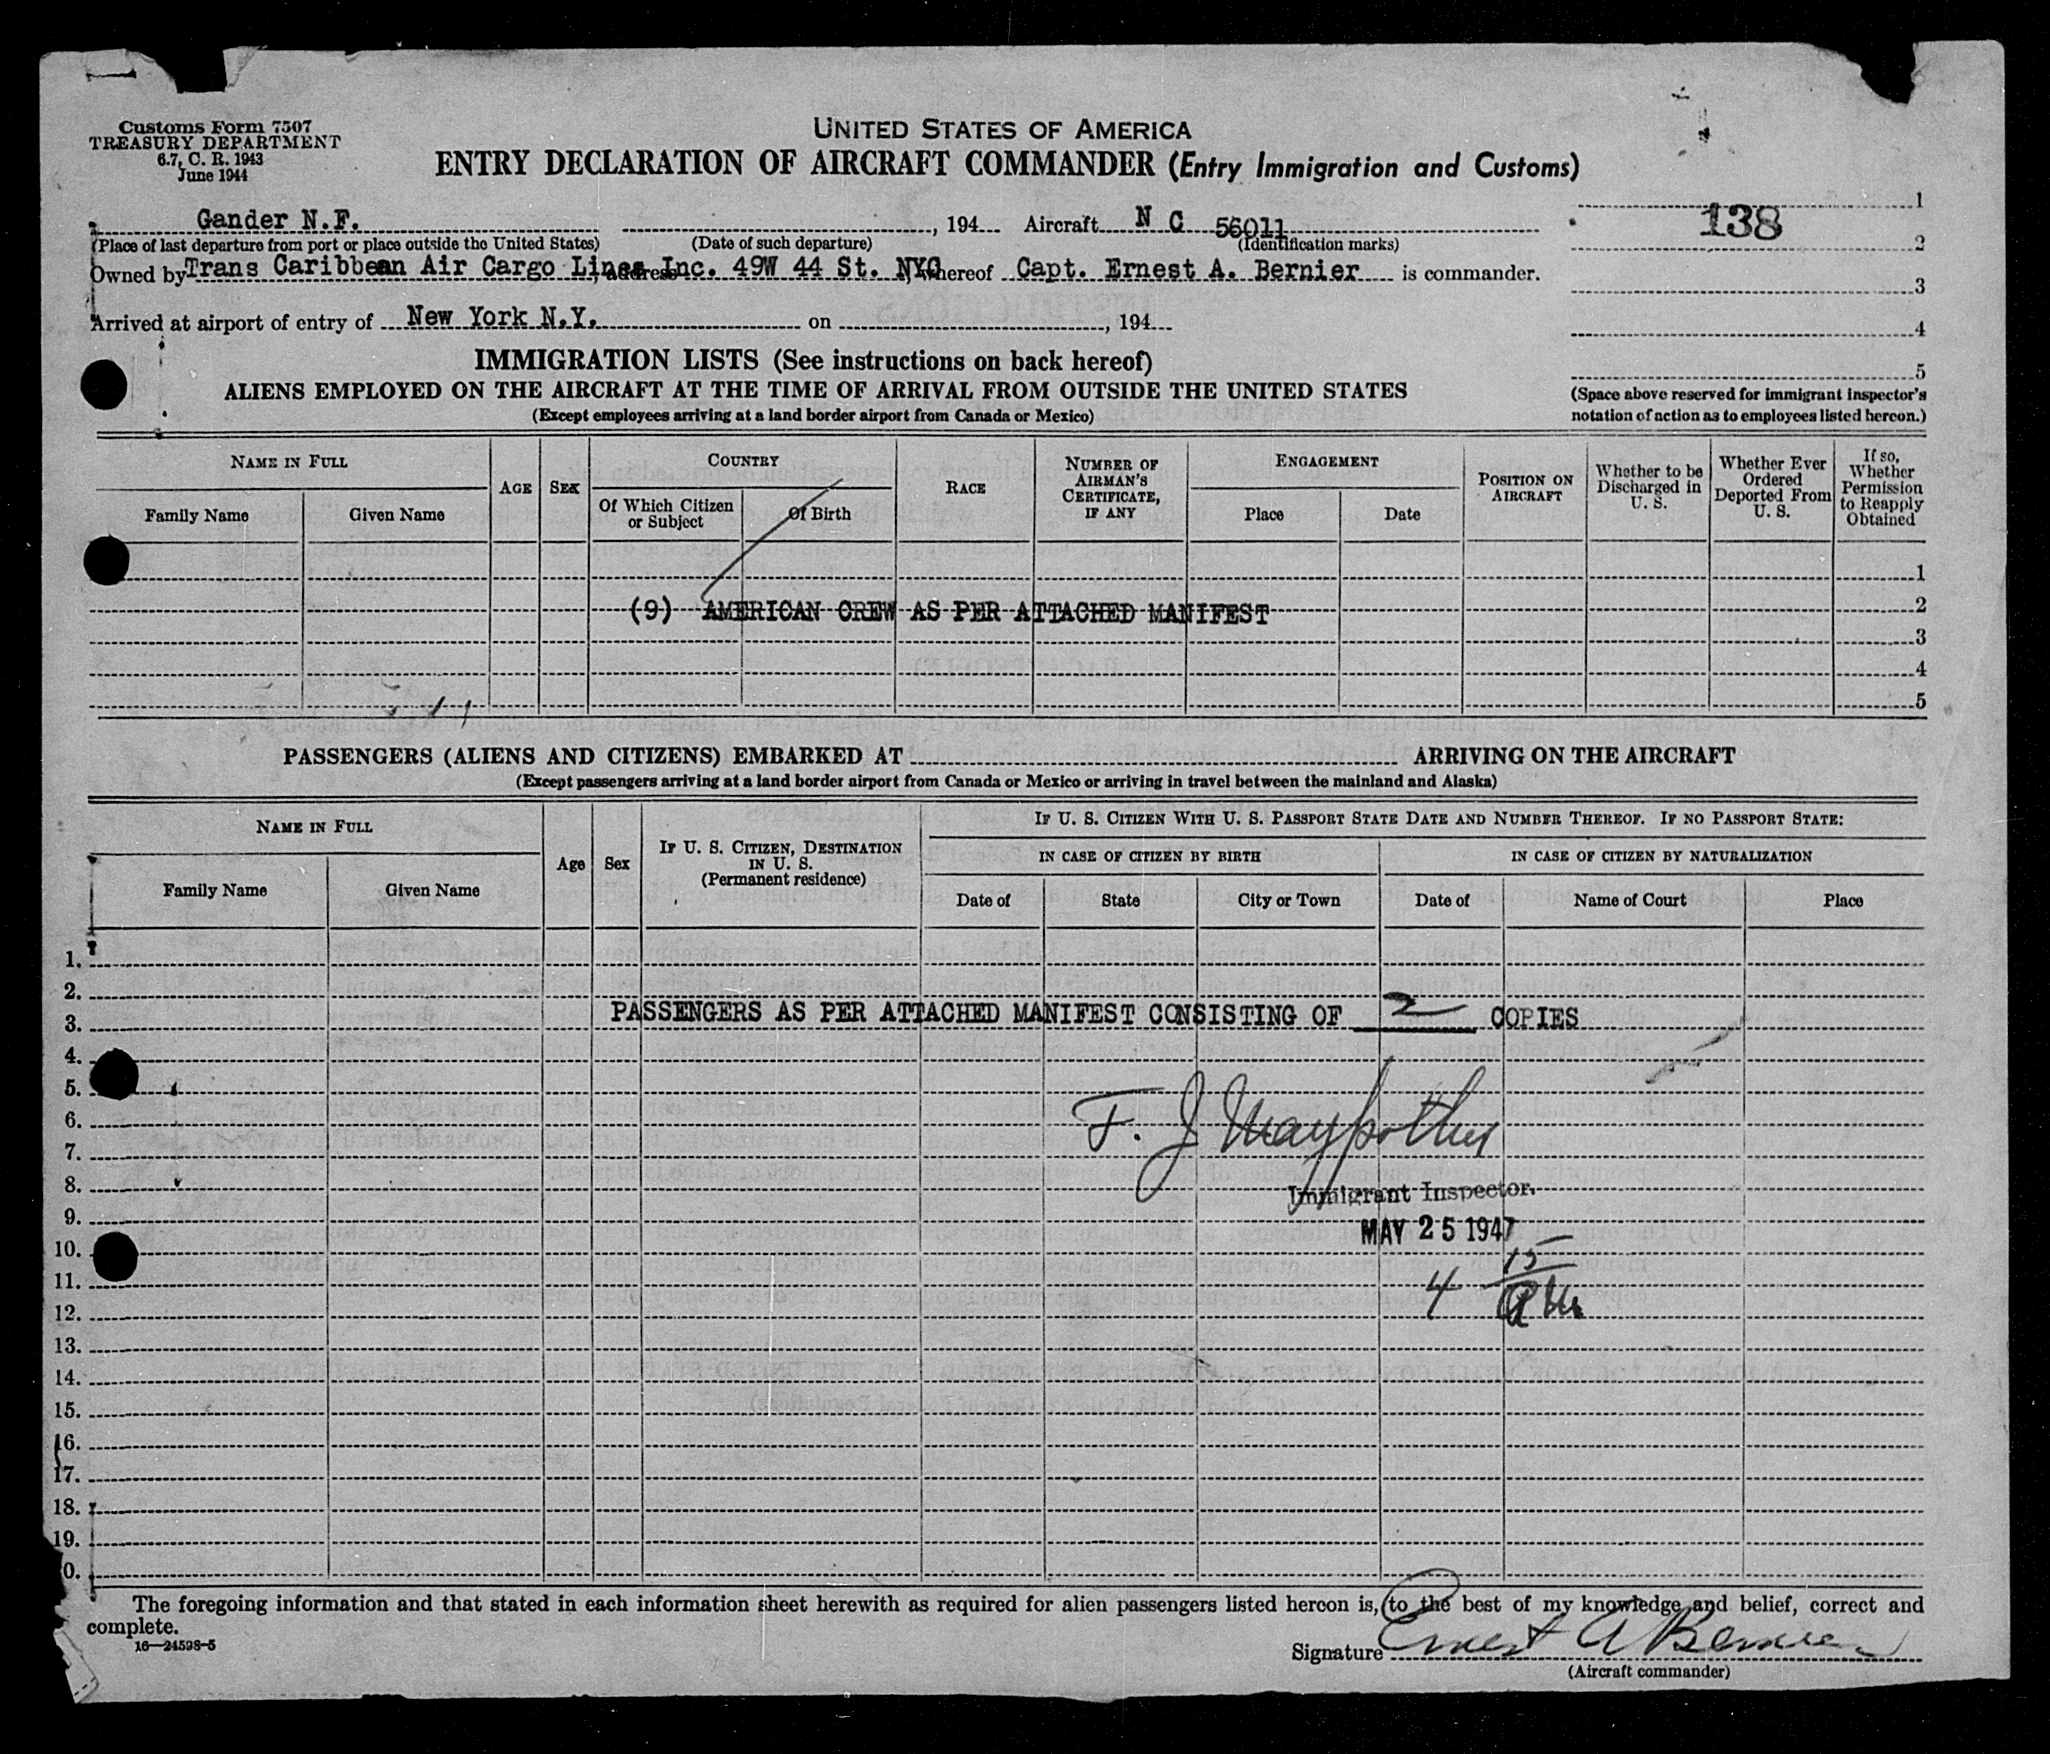 Customs Form 7507
TREASURY DEPARTMENT
6.7, C. R. 1943
June 1944
UNITED STATES OF AMERICA
ENTRY DECLARATION OF AIRCRAFT COMMANDER (Entry Immigration and Customs)
Gander N.F. , 194 Aircraft N C 56011
(Place of last departure from port or place outside the United States) (Date of such departure) (Identification marks)
Owned by Trans Caribbean Air Cargo Lines Inc. , address 49W 44 St. NYC , whereof Capt. Ernest A. Bernier is commander.
Arrived at airport of entry of New York N.Y. on , 194
1
138
2
3
4
5
(Space above reserved for immigrant inspector's
notation of action as to employees listed hereon.)
IMMIGRATION LISTS (See instructions on back hereof)
ALIENS EMPLOYED ON THE AIRCRAFT AT THE TIME OF ARRIVAL FROM OUTSIDE THE UNITED STATES
(Except employees arriving at a land border airport from Canada or Mexico)
NAME IN FULL
Family Name Given Name
AGE SEX
COUNTRY
Of Which Citizen or Subject
Of Birth
RACE
NUMBER OF AIRMAN'S CERTIFICATE, IF ANY
ENGAGEMENT
Place Date
POSITION ON AIRCRAFT
Whether to be Discharged in U. S.
Whether Ever Ordered Deported From U. S.
If so, Whether Permission to Reapply Obtained
1
(9) AMERICAN CREW AS PER ATTACHED MANIFEST 2
3
4
5
PASSENGERS (ALIENS AND CITIZENS) EMBARKED AT ARRIVING ON THE AIRCRAFT
(Except passengers arriving at a land border airport from Canada or Mexico or arriving in travel between the mainland and Alaska)
NAME IN FULL
Family Name Given Name
Age Sex
IF U. S. CITIZEN, DESTINATION
IN U. S.
(Permanent residence)
IF U. S. CITIZEN WITH U. S. PASSPORT STATE DATE AND NUMBER THEREOF. IF NO PASSPORT STATE:
IN CASE OF CITIZEN BY BIRTH IN CASE OF CITIZEN BY NATURALIZATION
Date of State City or Town Date of Name of Court Place
1.
2.
PASSENGERS AS PER ATTACHED MANIFEST CONSISTING OF 2 COPIES
3.
4.
5.
6. F. J.
7.
8. Immigrant Inspector.
9. MAY 25 1947
10.
11. 4 15
12.
13.
14.
15.
16.
17.
18.
19.
0.
The foregoing information and that stated in each information sheet herewith as required for alien passengers listed hereon is, to the best of my knowledge and belief, correct and
complete.
16—24598-5
Signature Ernest A Bernier
(Aircraft commander)